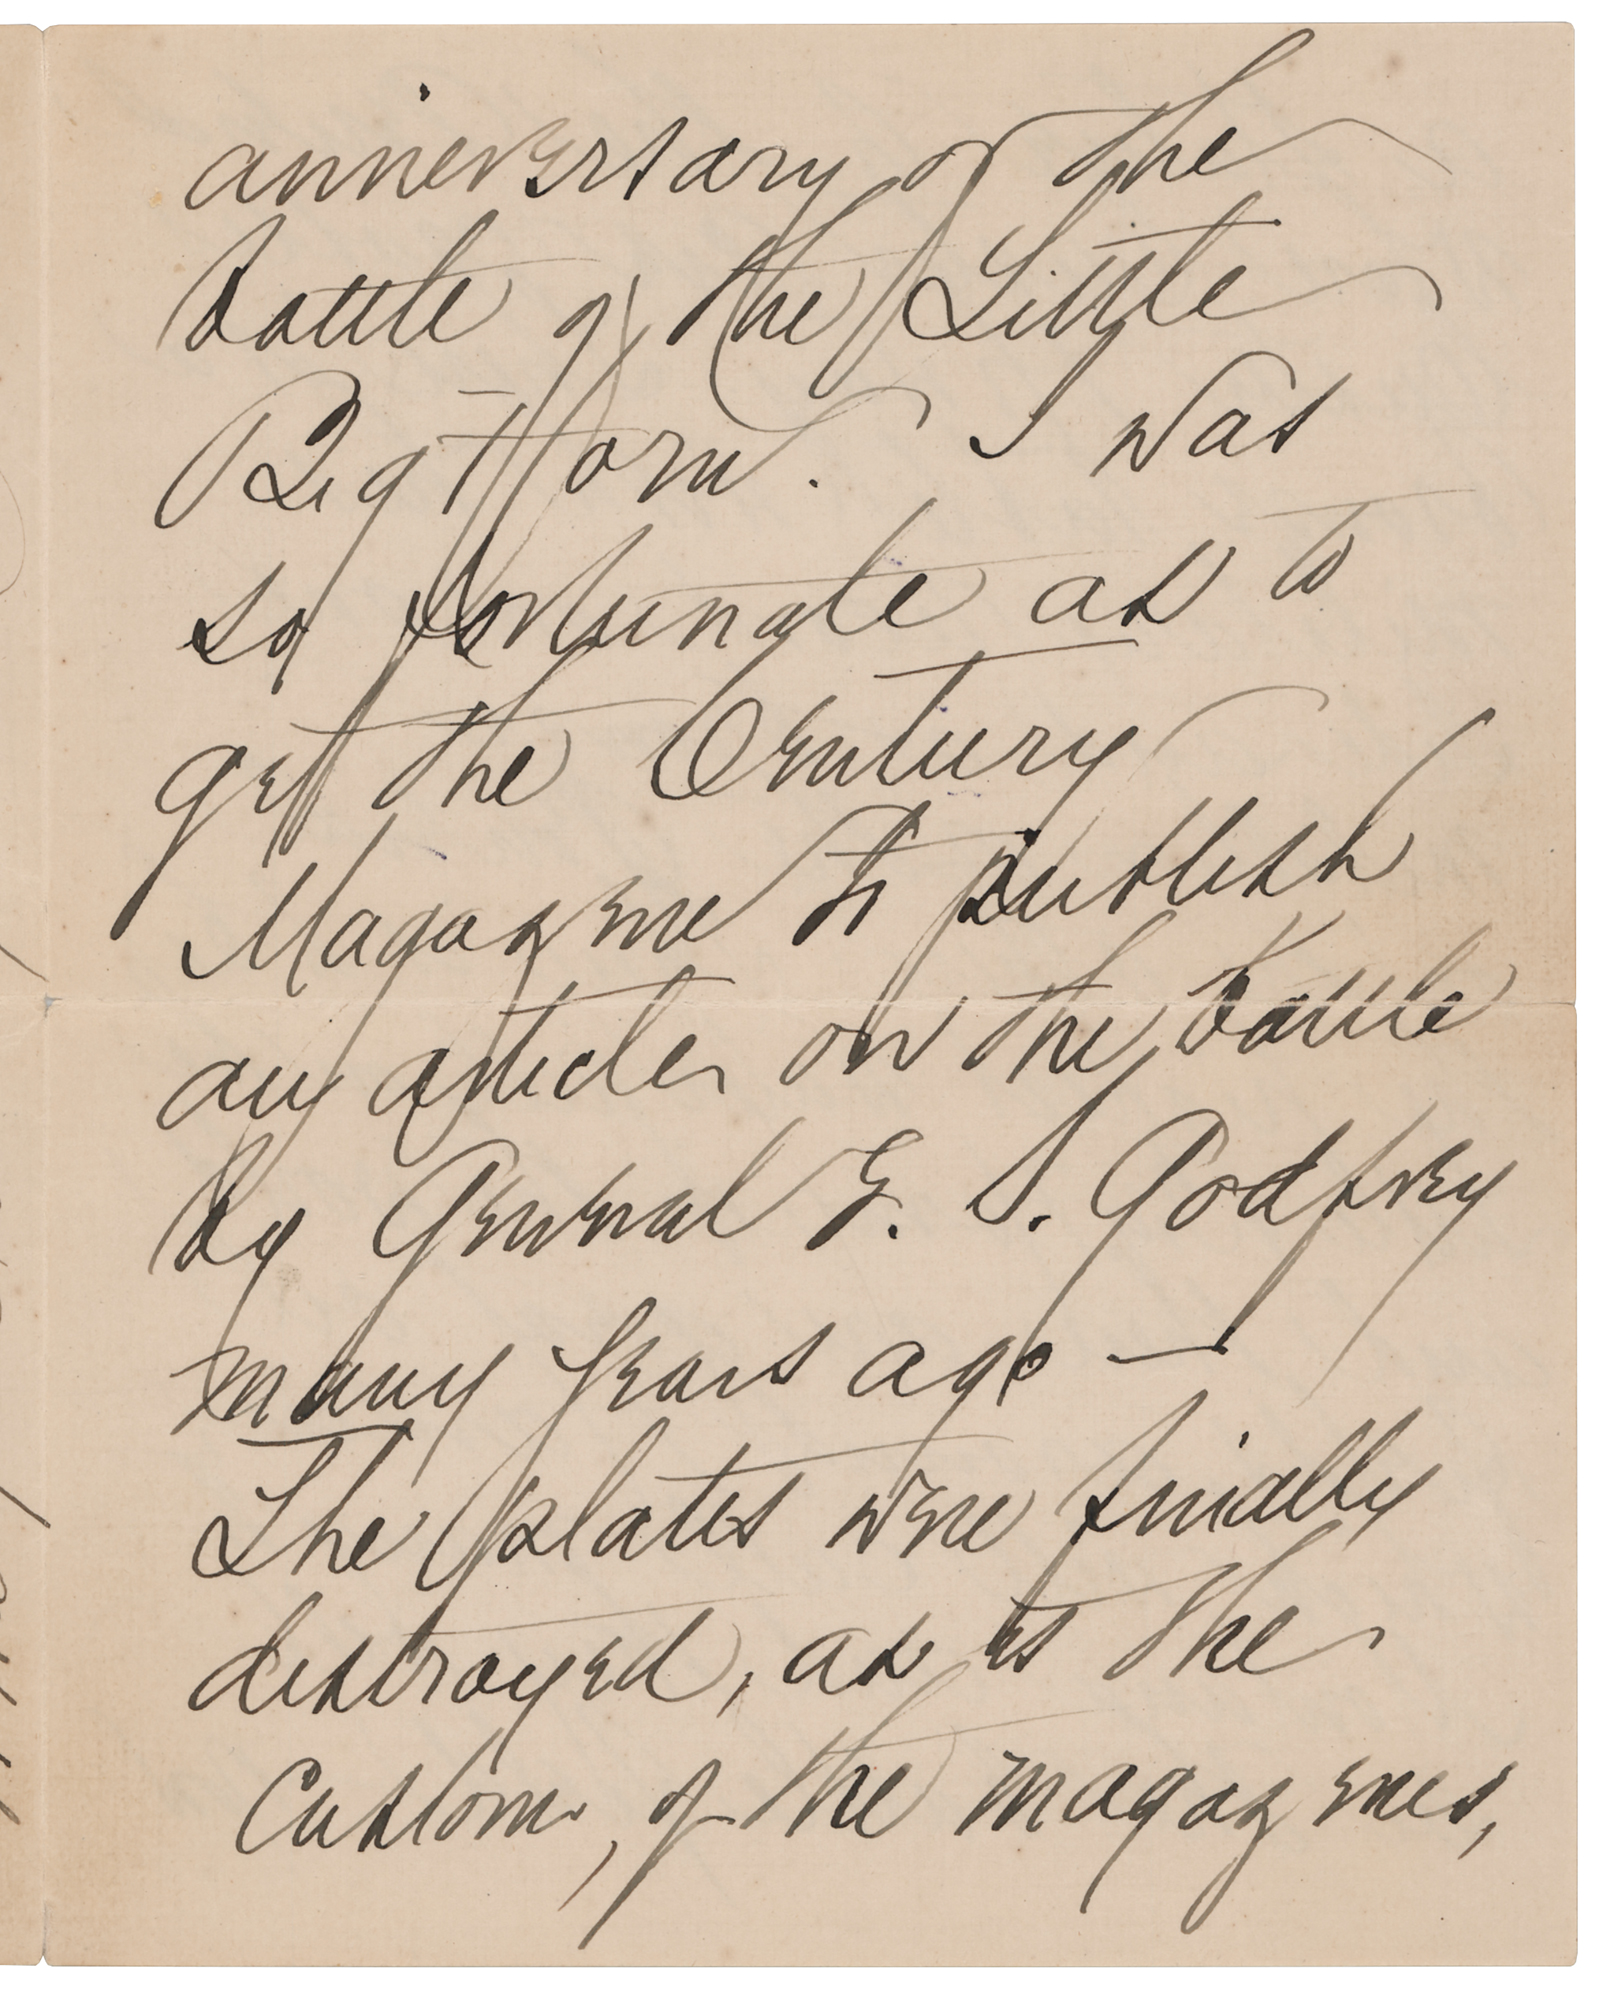 anniversary of the
battle of the Little
Big Horn. I was
so fortunate as to
get the Century
Magazine to publish
an article on the battle
by General E. S. Godfrey
many years ago —
The plates were finally
destroyed, as is the
custom, of the magazines,